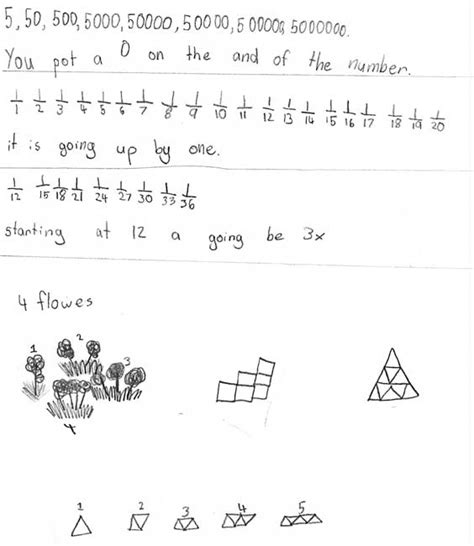 5, 50, 500, 5000, 50000, 50000, 500000, 5000000.
You pot a 0 on the and of the number.
1/1 1/2 1/3 1/4 1/5 1/6 1/7 1/8 1/9 1/10 1/11 1/12 1/13 1/14 1/15 1/16 1/17 1/18 1/19 1/20
it is going up by one.
1/12 1/15 1/18 1/21 1/24 1/27 1/30 1/33 1/36
starting at 12 a going be 3x
4 flowes
1 2 3
4
1 2 3 4 5